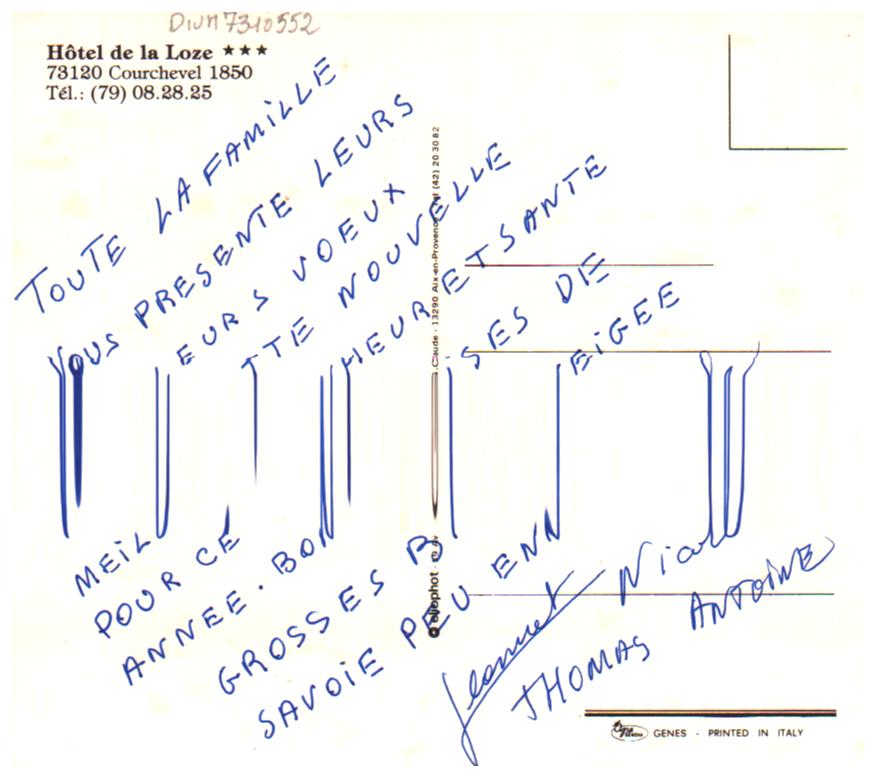 DIVN7310552
Hôtel de la Loze ★★★
73120 Courchevel 1850
Tél.: (79) 08.28.25
TOUTE LA FAMILLE
VOUS PRESENTE LEURS
MEIL EURS VOEUX
POUR CE TTE NOUVELLE
ANNEE. BON HEUR ET SANTE
GROSSES B ISES DE
SAVOIE PEU ENN EIGEE
Jeannet Nicole
THOMAS ANTOINE
Claude - 13290 Aix-en-Provence (42) 20 30 82
GENES - PRINTED IN ITALY